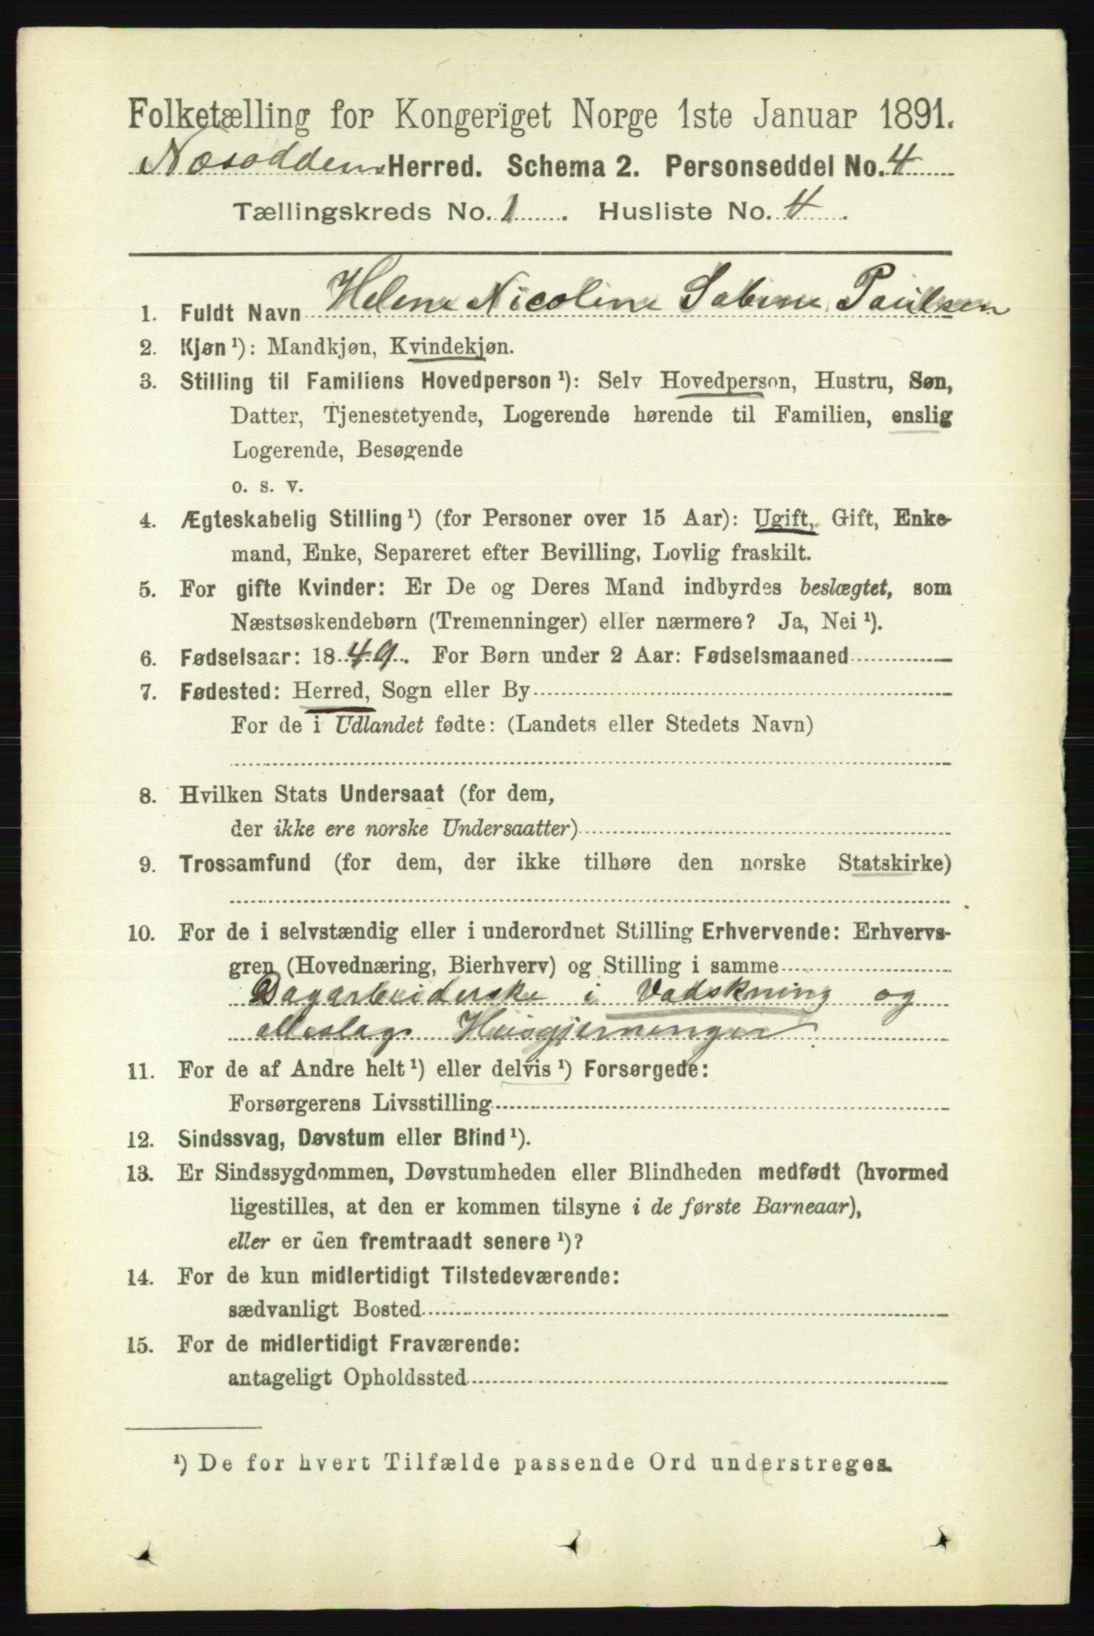 Folketælling for Kongeriget Norge 1ste Januar 1891.
Næsoddens Herred. Schema 2. Personseddel No. 4
Tællingskreds No. 1. Husliste No. 4.
1. Fuldt Navn Helene Nicoline Sabine Paulsen
2. Kjøn ¹): Mandkjøn, Kvindekjøn.
3. Stilling til Familiens Hovedperson ¹): Selv Hovedperson, Hustru, Søn,
Datter, Tjenestetyende, Logerende hørende til Familien, enslig
Logerende, Besøgende
o. s. v.
4. Ægteskabelig Stilling ¹) (for Personer over 15 Aar): Ugift, Gift, Enke-
mand, Enke, Separeret efter Bevilling, Lovlig fraskilt.
5. For gifte Kvinder: Er De og Deres Mand indbyrdes beslægtet, som
Næstsøskendebørn (Tremenninger) eller nærmere? Ja, Nei ¹).
6. Fødselsaar: 1849. For Børn under 2 Aar: Fødselsmaaned
7. Fødested: Herred, Sogn eller By
For de i Udlandet fødte: (Landets eller Stedets Navn)
8. Hvilken Stats Undersaat (for dem,
der ikke ere norske Undersaatter)
9. Trossamfund (for dem, der ikke tilhøre den norske Statskirke)
10. For de i selvstændig eller i underordnet Stilling Erhvervende: Erhvervs-
gren (Hovednæring, Bierhverv) og Stilling i samme
Dagarbeiderske i Vadskning og
alleslags Huisgjerninger
11. For de af Andre helt ¹) eller delvis ¹) Forsørgede:
Forsørgerens Livsstilling
12. Sindssvag, Døvstum eller Blind ¹).
13. Er Sindssygdommen, Døvstumheden eller Blindheden medfødt (hvormed
ligestilles, at den er kommen tilsyne i de første Barneaar),
eller er den fremtraadt senere ¹)?
14. For de kun midlertidigt Tilstedeværende:
sædvanligt Bosted
15. For de midlertidigt Fraværende:
antageligt Opholdssted
¹) De for hvert Tilfælde passende Ord understreges.